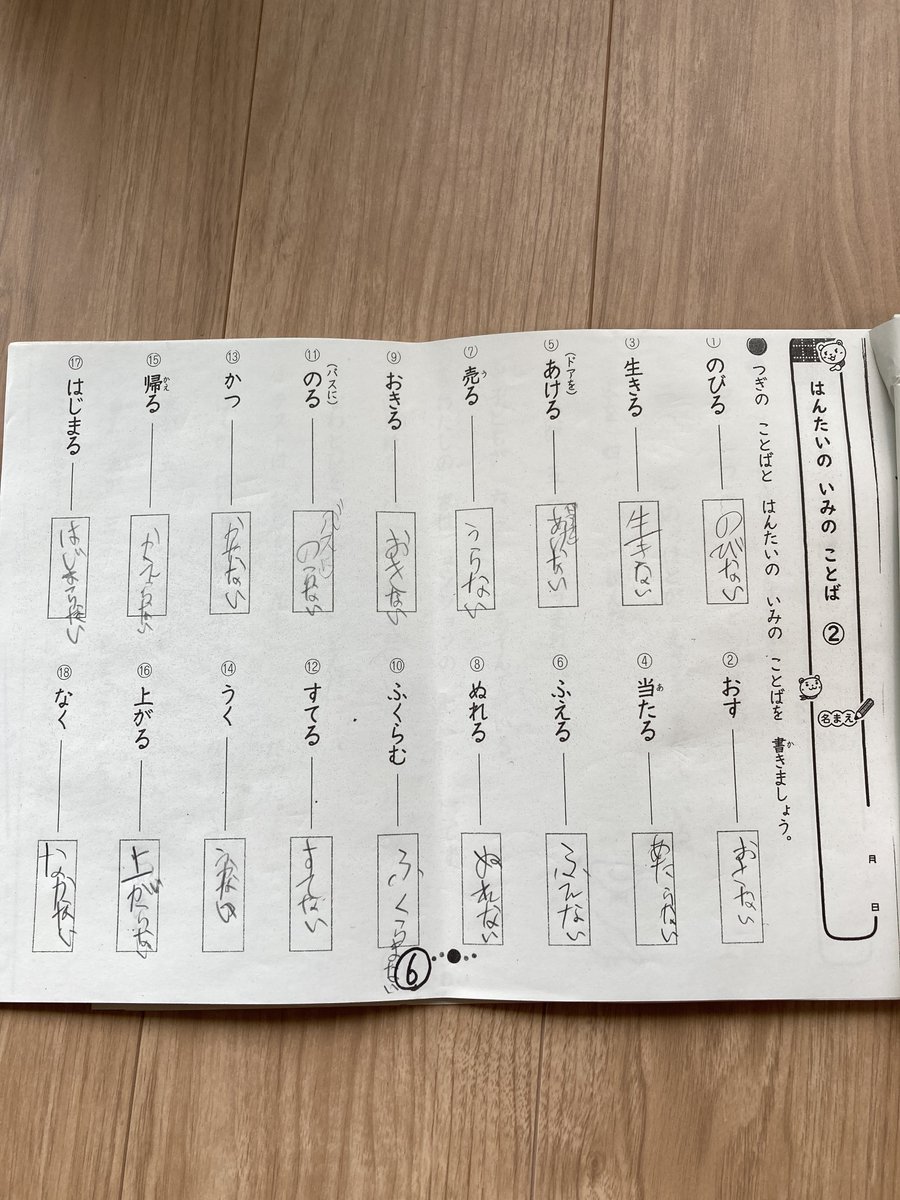 はんたいの いみの ことば ②
名まえ
月 日
つぎの ことばと はんたいの いみの ことばを 書(か)きましょう。
① のびる のびない
② おす おさない
③ 生きる 生きない
④ 当(あ)たる あたらない
⑤ (ドアを)あける あけない
⑥ ふえる ふえない
⑦ 売(う)る うらない
⑧ ぬれる ぬれない
⑨ おきる おきない
⑩ ふくらむ ふくらまない
⑪ (バスに)のる バスに のらない
⑫ すてる すてない
⑬ かつ かたない
⑭ うく
⑮ 帰(かえ)る かえらない
⑯ 上がる 上がらない
⑰ はじまる はじまらない
⑱ なく なかない
6